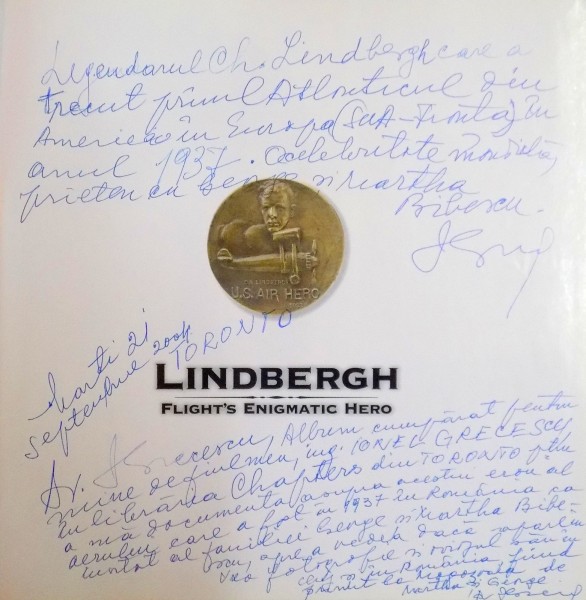 Legendarul Ch. Lindbergh care a
trecut primul Atlanticul din
America în Europa (SUA-Franța) în
anul 1937. O celebritate mondială,
prieten cu George și Martha
Bibescu.
U.S. AIR HERO
Marți 21
septembrie 2004
TORONTO
LINDBERGH
FLIGHT'S ENIGMATIC HERO
Av. Grecescu, Album cumpărat pentru
mine de fiul meu, ing. IONEL GRECESCU,
în librăria Chapters din TORONTO ptru
a mă documenta asupra acestui erou al
aerului, care a fost în 1937 în România ca
invitat al familiei George și Martha Bibe-
scu, spre a vedea dacă apar în
vreo fotografie
în România fiind
primit la de
Martha și George.